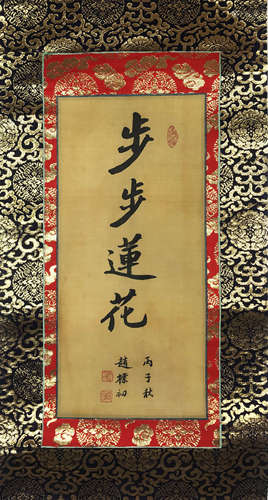 步步蓮花
丙子秋
趙樸初